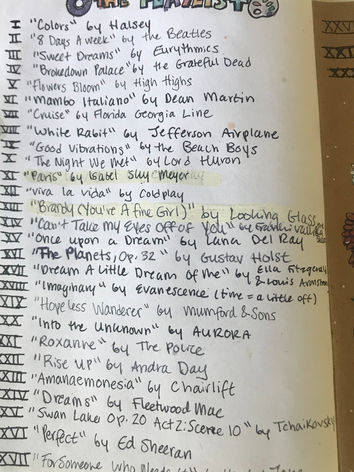 THE PLAYLIST
I "Colors" by Halsey
II "8 Days A week" by the Beatles
III "Sweet Dreams" by Eurythmics
IV "Brokedown Palace" by the Grateful Dead
V "Flowers Bloom" by High Highs
VI "Mambo Italiano" by Dean Martin
VII "Cruise" by Florida Georgia Line
VIII "White Rabit" by Jefferson Airplane
IX "Good Vibrations" by the Beach Boys
X "The Night We Met" by Lord Huron
XI "Paris" by Isabel Sky Meyer
XII "Viva la vida" by Coldplay
XIII "Brandy (You're A fine Girl)" by Looking Glass
XIV "Can't Take my Eyes Off of You" by Frankie Valli
XV "Once upon a Dream" by Lana Del Ray
XVI "The Planets, Op. 32" by Gustav Holst
XVII "Dream A Little Dream of Me" by Ella Fitzgerald
& Louis Armstrong
XVIII "Imaginary" by Evanescence (time = a little off)
XIX "Hopeless Wanderer" by Mumford & Sons
XX "Into the Unknown" by AURORA
XXI "Roxanne" by The Police
XXII "Rise Up" by Andra Day
XXIII "Amanaemonesia" by Chairlift
XXIV "Dreams" by Fleetwood Mac
XXV "Swan Lake Op. 20 Act 2: Scene 10" by Tchaikovsky
XXVI "Perfect" by Ed Sheeran
XXVII "For Someone Who